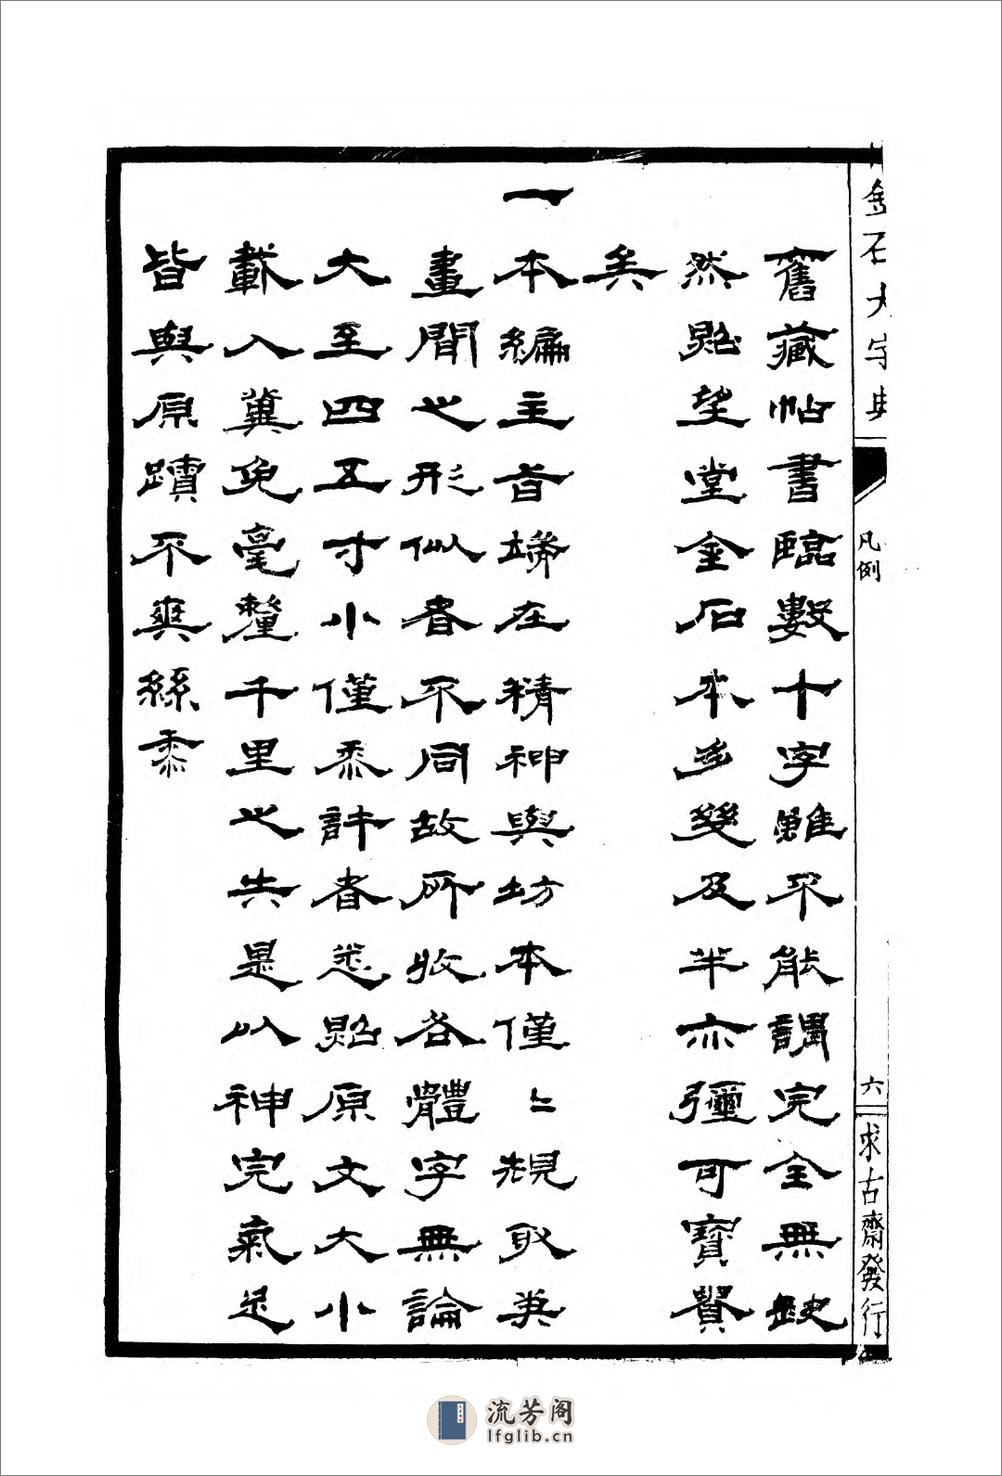 金石大字典
凡例
六
求古齋發行
舊藏帖書臨數十字雖不能謂完全無缺
然貽望堂金石本多幾及半亦彌可寶貴
矣
一本編主旨端在精神與坊本僅〻規取其
畫間之形似者不同故所收各體字無論
大至四五寸小僅黍許者悉照原文大小
載入冀免毫釐千里之失是以神完氣足
皆與原蹟不爽絲黍
流芳阁
lfglib.cn